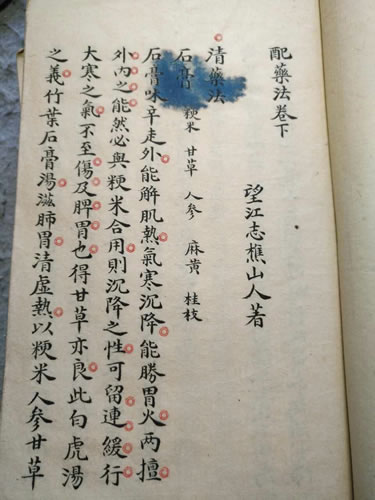 配藥法卷下
望江志樵山人著
清藥法
石膏 粳米 甘草 人參 麻黃 桂枝
石膏味辛走外能解肌熱氣寒沉降能勝胃火兩擅
外內之能然必與粳米合用則沉降之性可留連緩行
大寒之氣不至傷及脾胃也得甘草亦良此白虎湯
之義竹葉石膏湯滋肺胃清虛熱以粳米人參甘草